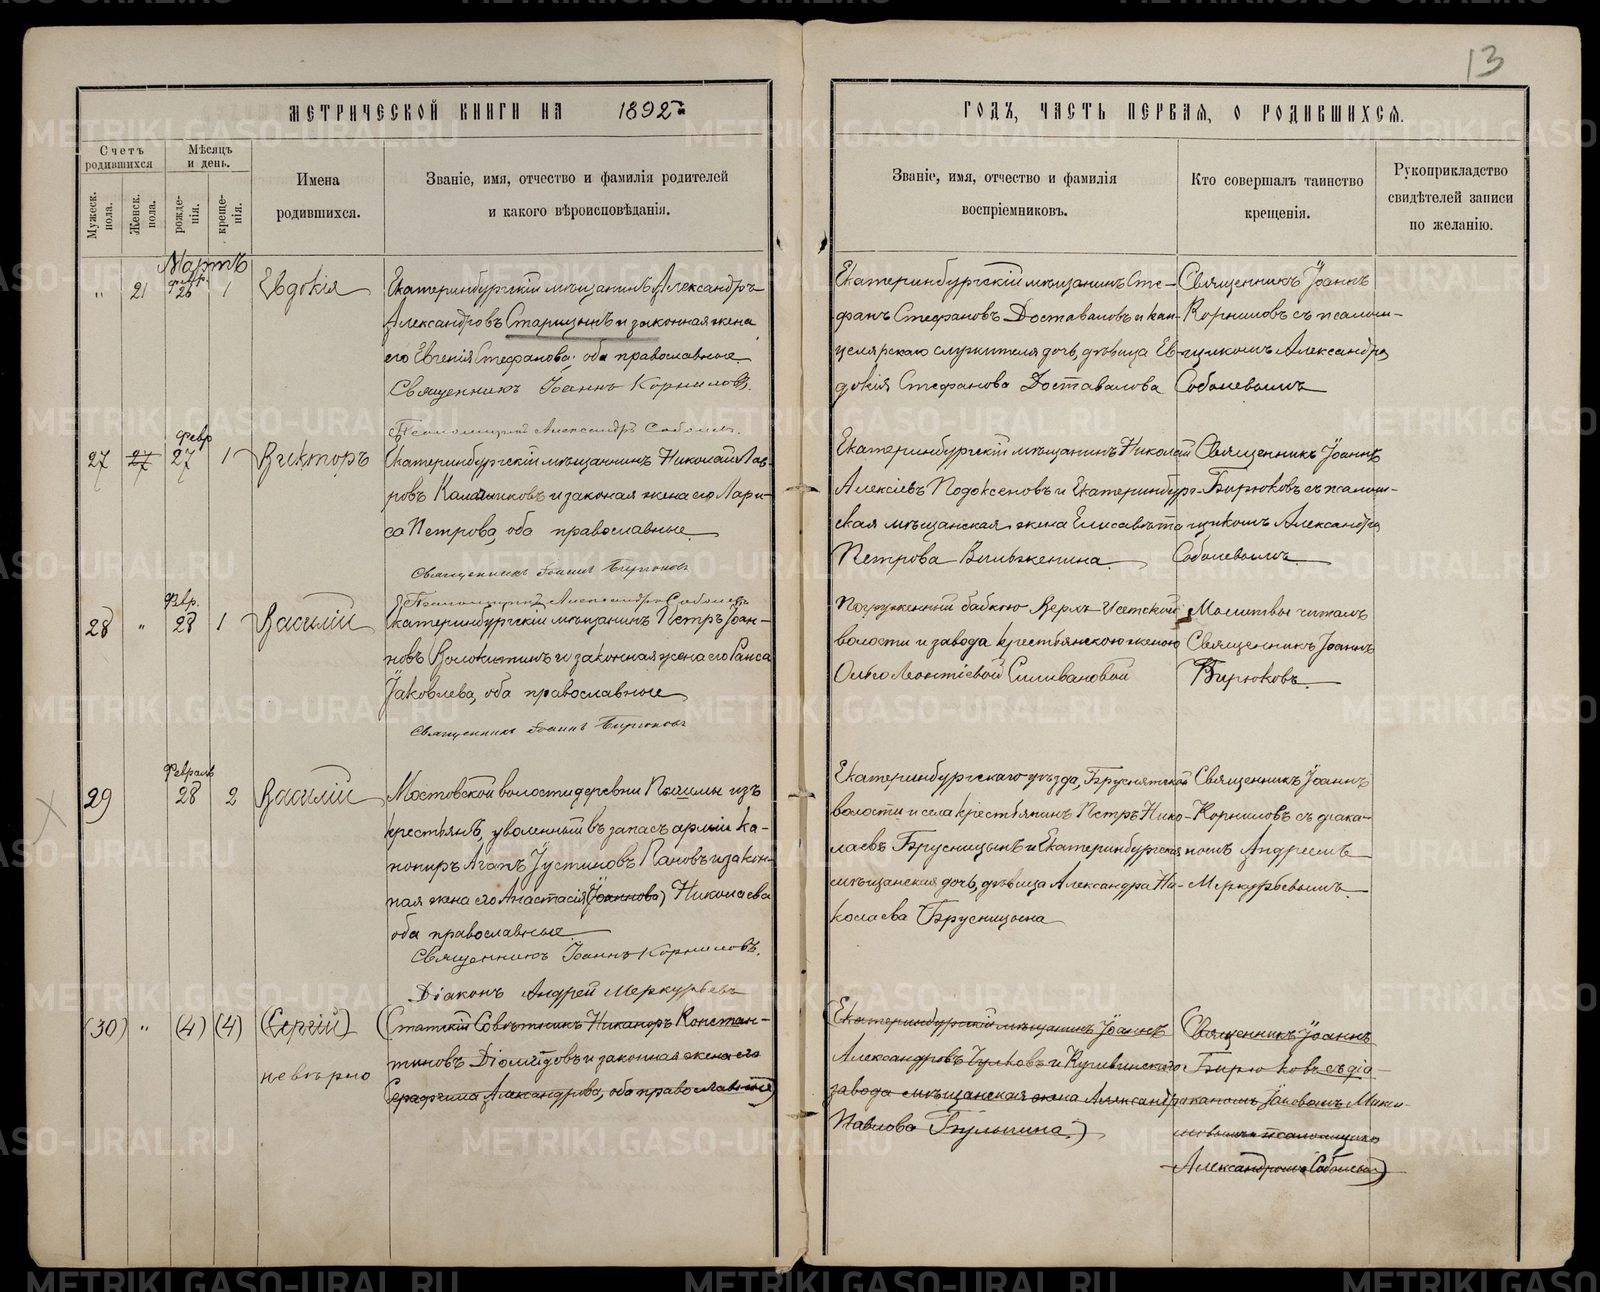 13
МЕТРИЧЕСКОЙ КНИГИ НА 1892й
ГОДЪ, ЧАСТЬ ПЕРВАЯ, О РОДИВШИХСЯ.
Счетъ родившихся
Мужеск. пола.
Женск. пола.
Мѣсяцъ и день.
рожде-нія.
креще-нія.
Имена
родившихся.
Званіе, имя, отчество и фамилія родителей
и какого вѣроисповѣданія.
Званіе, имя, отчество и фамилія
воспріемниковъ.
Кто совершалъ таинство
крещенія.
Рукоприкладство
свидѣтелей записи
по желанію.
Мартъ
февр.
" 21 26 1 Евдокія
Екатеринбургскій мѣщанинъ Александръ
Александровъ Старицынъ и законная жена
его Евгенія Стефанова, оба православные
Священникъ Іоаннъ Корниловъ.
Псаломщикъ Александръ Соболевъ.
Екатеринбургскій мѣщанинъ Сте-
фанъ Стефановъ Доставаловъ и кан-
целярскаго служителя дочь, дѣвица Ев-
докія Стефанова Доставалова
Священникъ Іоаннъ
Корниловъ съ псалом-
щикомъ Александромъ
Соболевымъ
февр
27 27 27 1 Викторъ
Екатеринбургскій мѣщанинъ Николай Лав-
ровъ Калашниковъ и законая жена его Лари-
са Петрова, оба православные
Священникъ Іоаннъ Бирюковъ
Псаломщикъ Александръ Соболевъ
Екатеринбургскій мѣщанинъ Николай
Алексіевъ Подоксеновъ и Екатеринбург-
ская мѣщанская жена Елисавета
Петрова
Священникъ Іоаннъ
Бирюковъ съ псалом-
щикомъ Александромъ
Соболевымъ
Февр.
28 " 28 1 Василій
Екатеринбургскій мѣщанинъ Петръ Іоан-
новъ Волокитинъ и законная жена его Раиса
Іаковлева, оба православные
Священникъ Іоаннъ Бирюковъ
Погруженный бабкою Верхъ-Исетской
волости и завода крестьянскою женою
Ольгою Леонтіевой Силивановой
Молитвы читалъ
Священникъ Іоаннъ
Бирюковъ.
Февраль
29 28 2 Василій
Мостовской волости деревни Пышмы изъ
крестьянъ, уволенный въ запасъ арміи ка-
нониръ Агапъ Іустиновъ Пановъ и закон-
ная жена его Анастасія (Іоаннова) Николаева
оба православные
Священникъ Іоаннъ Корниловъ.
Діаконъ Андрей Меркурьевъ
Екатеринбургскаго уѣзда, Бруснятской
волости и села крестьянинъ Петръ Нико-
лаевъ Брусницынъ и Екатеринбургская
мѣщанская дочь, дѣвица Александра Ни-
колаева Брусницына
Священникъ Іоаннъ
Корниловъ съ діако-
номъ Андреемъ
Меркурьевымъ
(30) " (4) (4) (Сергій)
невѣрно
(Статскій Совѣтникъ Никаноръ Констан-
тиновъ Діомидовъ и законная жена его
Серафима Александрова, оба православные)
(Екатеринбургскій мѣщанинъ Іоаннъ
Александровъ Чулковъ и Кушвинскаго
завода мѣщанская жена Александра
Павлова)
Священникъ Іоаннъ
Бирюковъ съ діа-
кономъ
псаломщикомъ
Александромъ Соболевымъ)